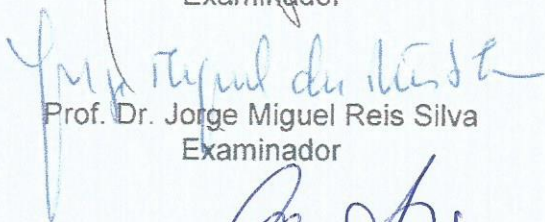 Examinador
Jorge Miguel
Prof. Dr. Jorge Miguel Reis Silva
Examinador